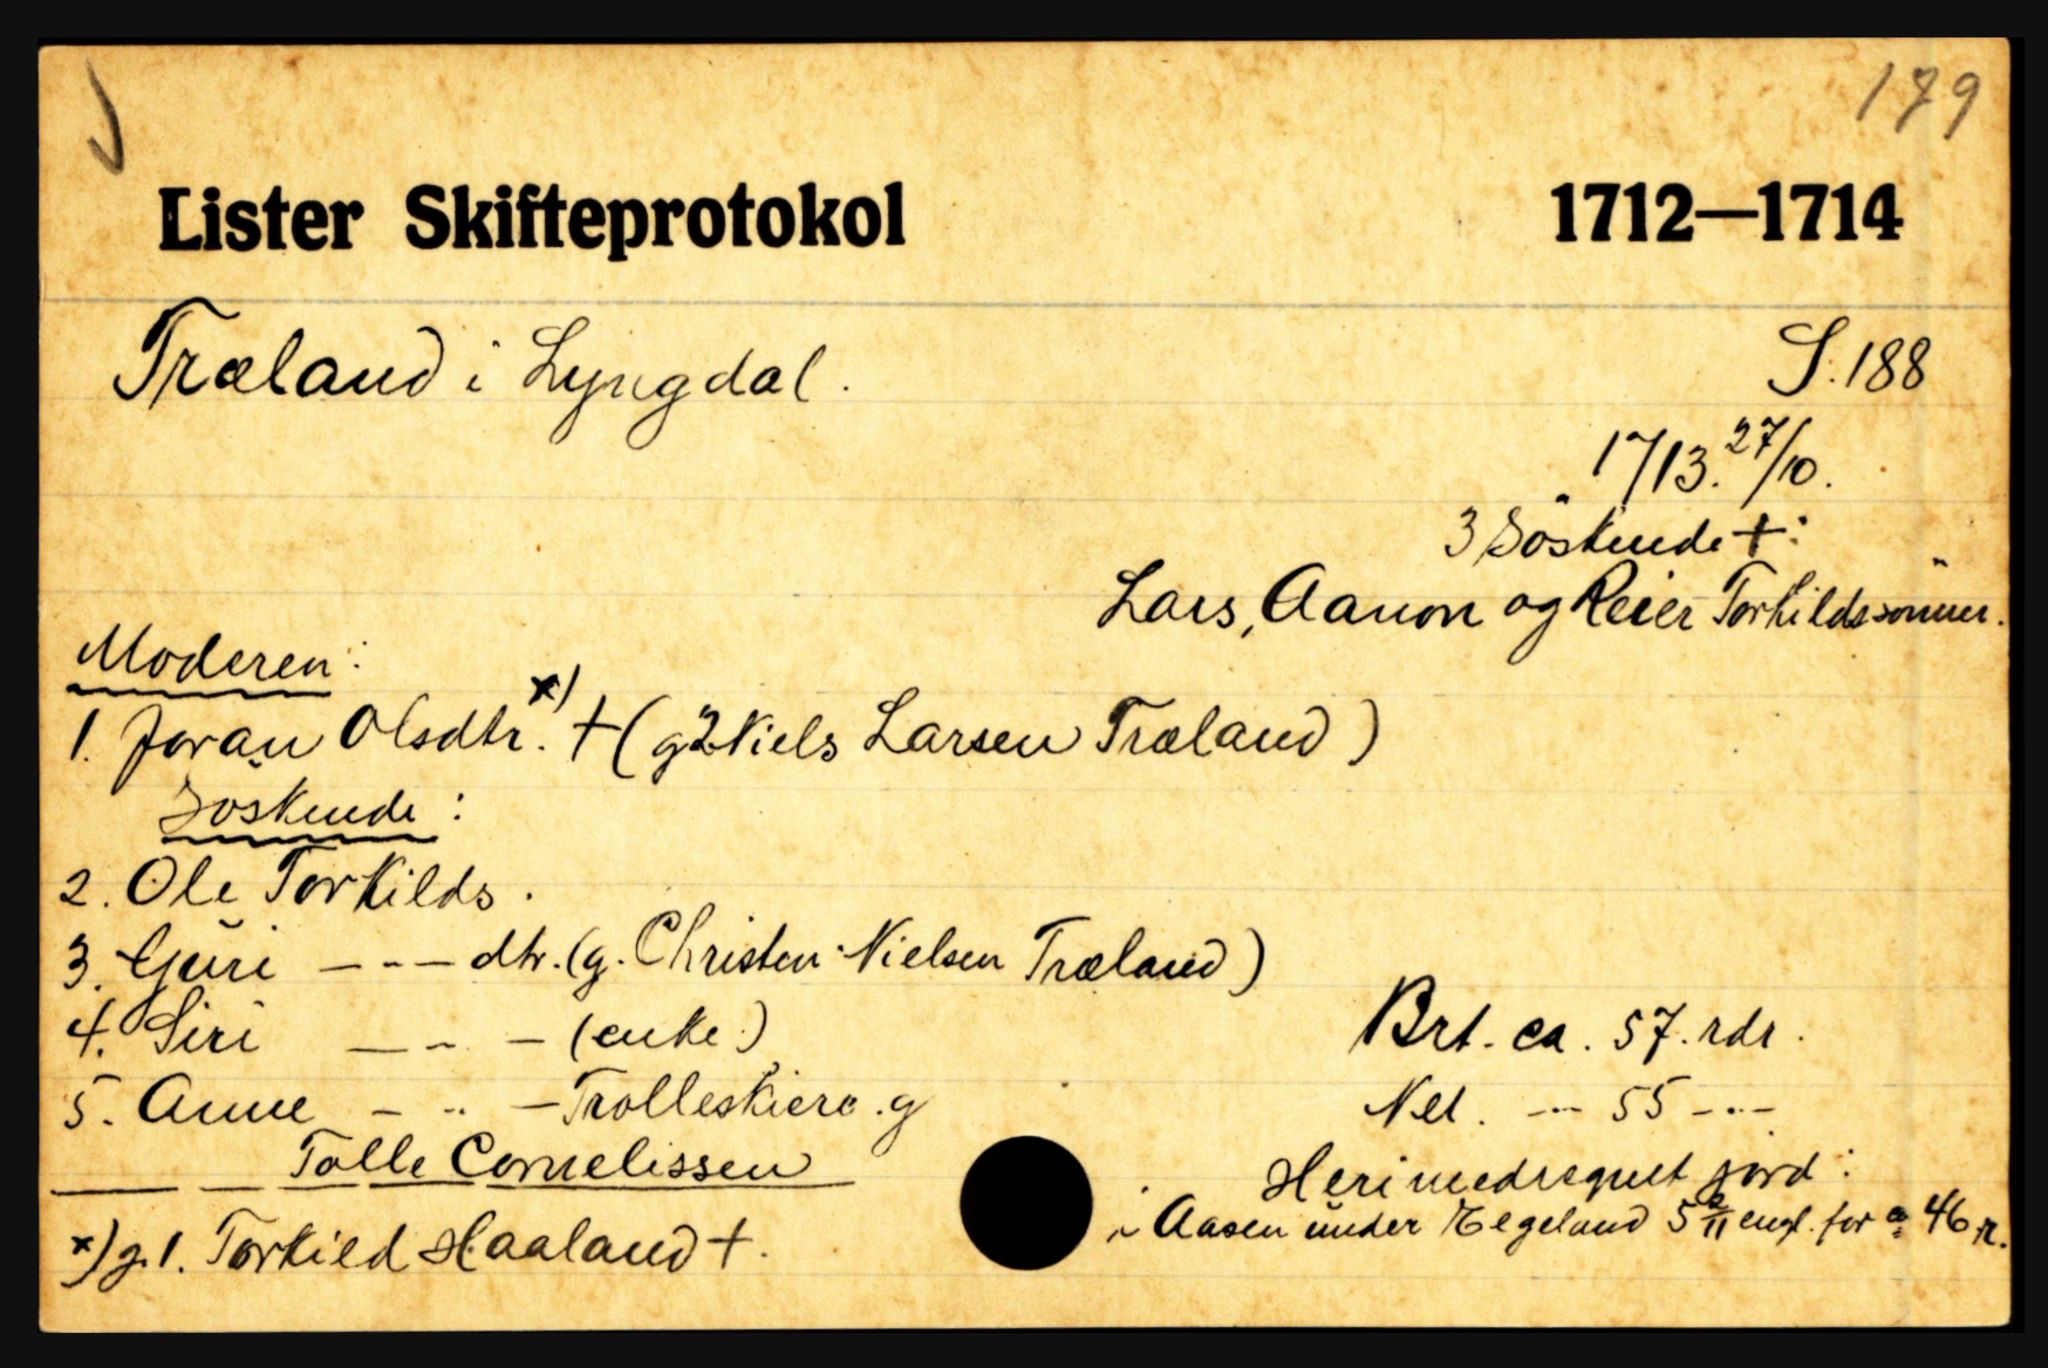 179
Lister Skifteprotokol 1712—1714
Træland i Lyngdal. S. 188
1713. 27/10.
3 Söskende +:
Lars, Aanon og Reier Torkildssönner.
Moderen:
1. Joran Olsdtr. x) + (g. 2 Niels Larsen Træland)
Söskende:
2. Ole Torkilds.
3. Guri --- dtr. (g. Christen Nielsen Træland)
4. Siri — - — (enke)
Brt. ca. 57. rdr.
5. Anne — - — Trolleskiere. g
Net. --- 55 ---
Tolle Cornelissen
Heri medregnet jord:
i Aasen under Egeland 5 2/11 engl. for ca 46 r.
x) g. 1. Torkild Haaland +.